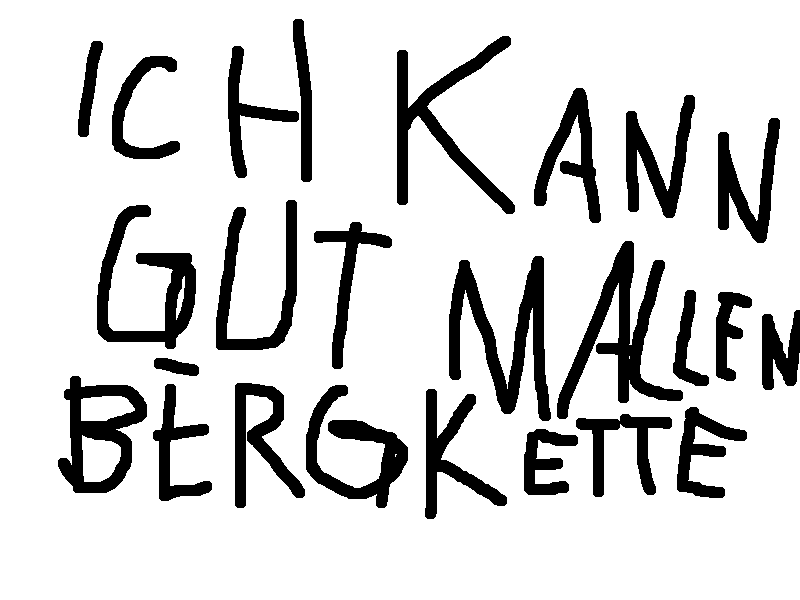 ICH KANN
GUT MALLEN
BERGKETTE